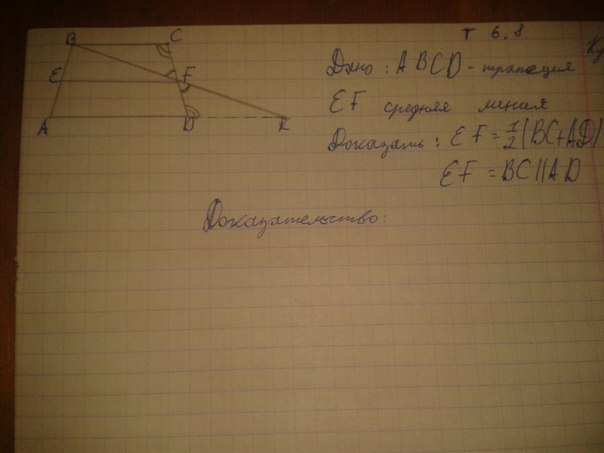 т 6.8
B C
Дано: ABCD - трапеция
E F
EF средняя линия
A D K
Доказать: EF = 1/2 (BC+AD)
EF = BC || AD
Доказательство: